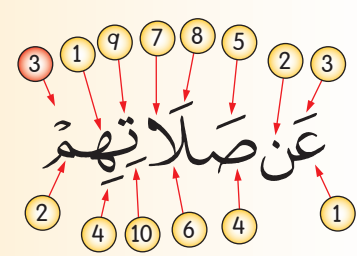 3 1 9 7 8 5 2 3
عَن صَلَاتِهِمْ
2 4 10 6 4 1